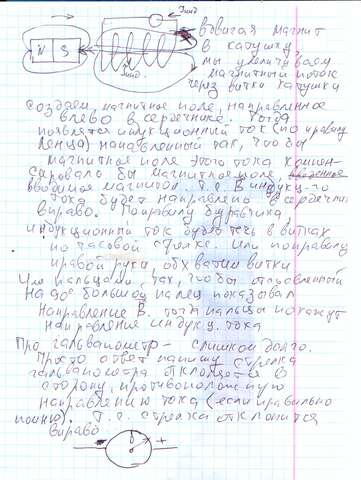 Iинд
N S
Iинд
вдвигая магнит
в катушку,
мы увеличиваем
магнитный поток
через витки катушки
создаем магнитное поле, направленное
влево в сердечнике. Тогда
появляется индукционный ток (по правилу
Ленца) направленный так, чтобы
магнитное поле этого тока компен-
сировало бы магнитное поле,
вводимое магнитом. Т.е. В индукц-го
тока будет направлено в сердечнике
вправо. По правилу буравчика,
индукционный ток будет течь в витках
по часовой стрелке. Или по правилу
правой руки, обхватим витки
пальцами, так, чтобы отставленный
на 90° большой палец показывал
направление В. тогда пальцы покажут
направление индукц. тока
Про гальванометр - слишком долго.
Просто ответ напишу стрелка
гальванометра отклоняется в
сторону, противоположную
направлению тока (если правильно
помню). Т.е. стрелка отклонится
вправо
- 0 +